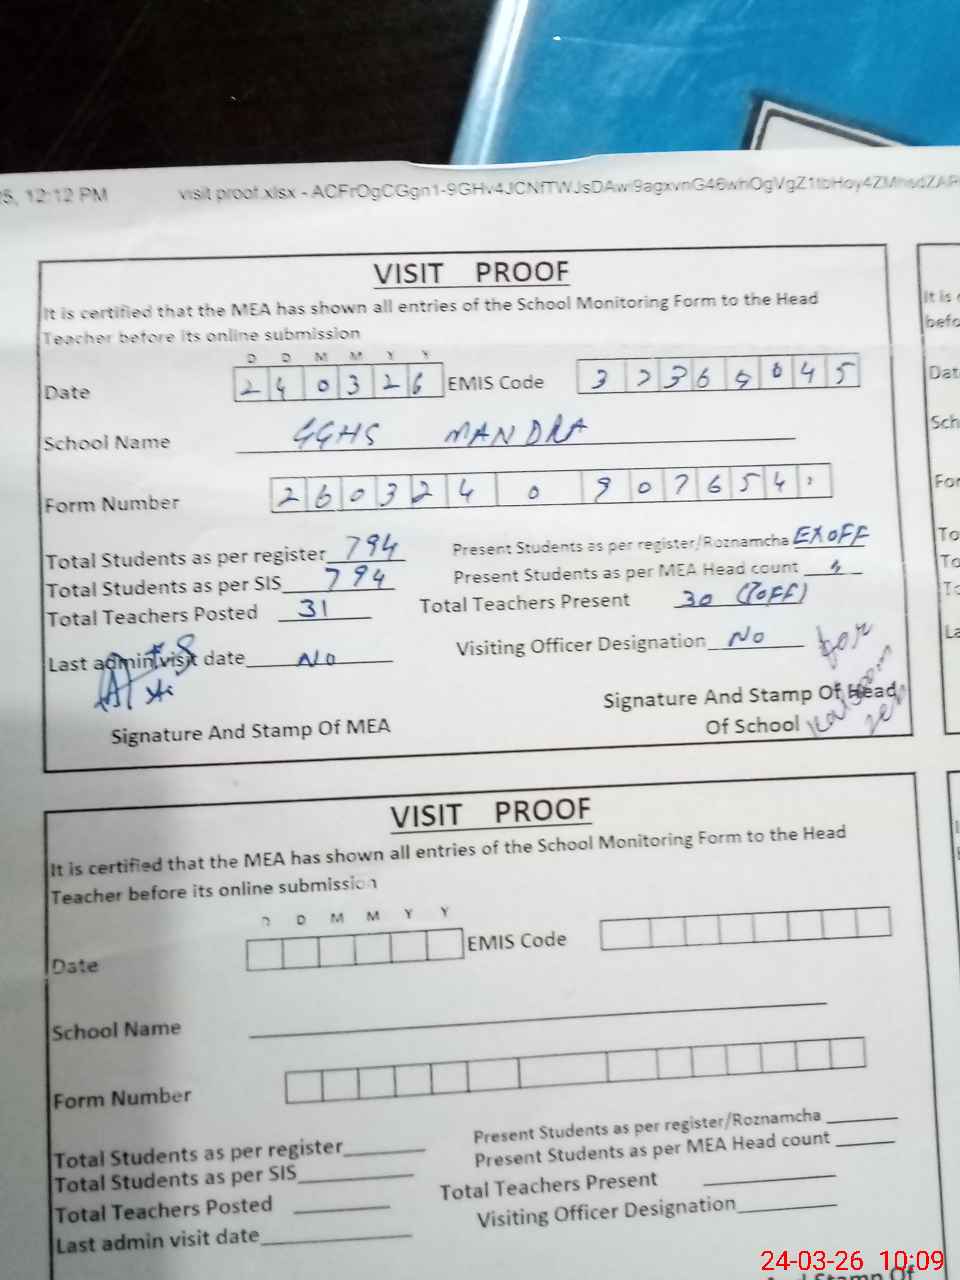 12:12 PM visit proof.xlsx -
VISIT PROOF
It is certified that the MEA has shown all entries of the School Monitoring Form to the Head
Teacher before its online submission
D D M M Y Y
Date 2 4 0 3 2 6 EMIS Code
School Name GGHS MANDRA
Form Number 2 6 0 3 2 4 0 9 0 7 6 5 4
Total Students as per register 794 Present Students as per register/Roznamcha EXOFF
Total Students as per SIS 794 Present Students as per MEA Head count
Total Teachers Posted 31 Total Teachers Present 30
Last admin visit date No Visiting Officer Designation No
for
Signature And Stamp Of MEA
Signature And Stamp Of Head
Of School
VISIT PROOF
It is certified that the MEA has shown all entries of the School Monitoring Form to the Head
Teacher before its online submission
D D M M Y Y
Date EMIS Code
School Name
Form Number
Total Students as per register Present Students as per register/Roznamcha
Total Students as per SIS Present Students as per MEA Head count
Total Teachers Posted Total Teachers Present
Last admin visit date Visiting Officer Designation
24-03-26 10:09